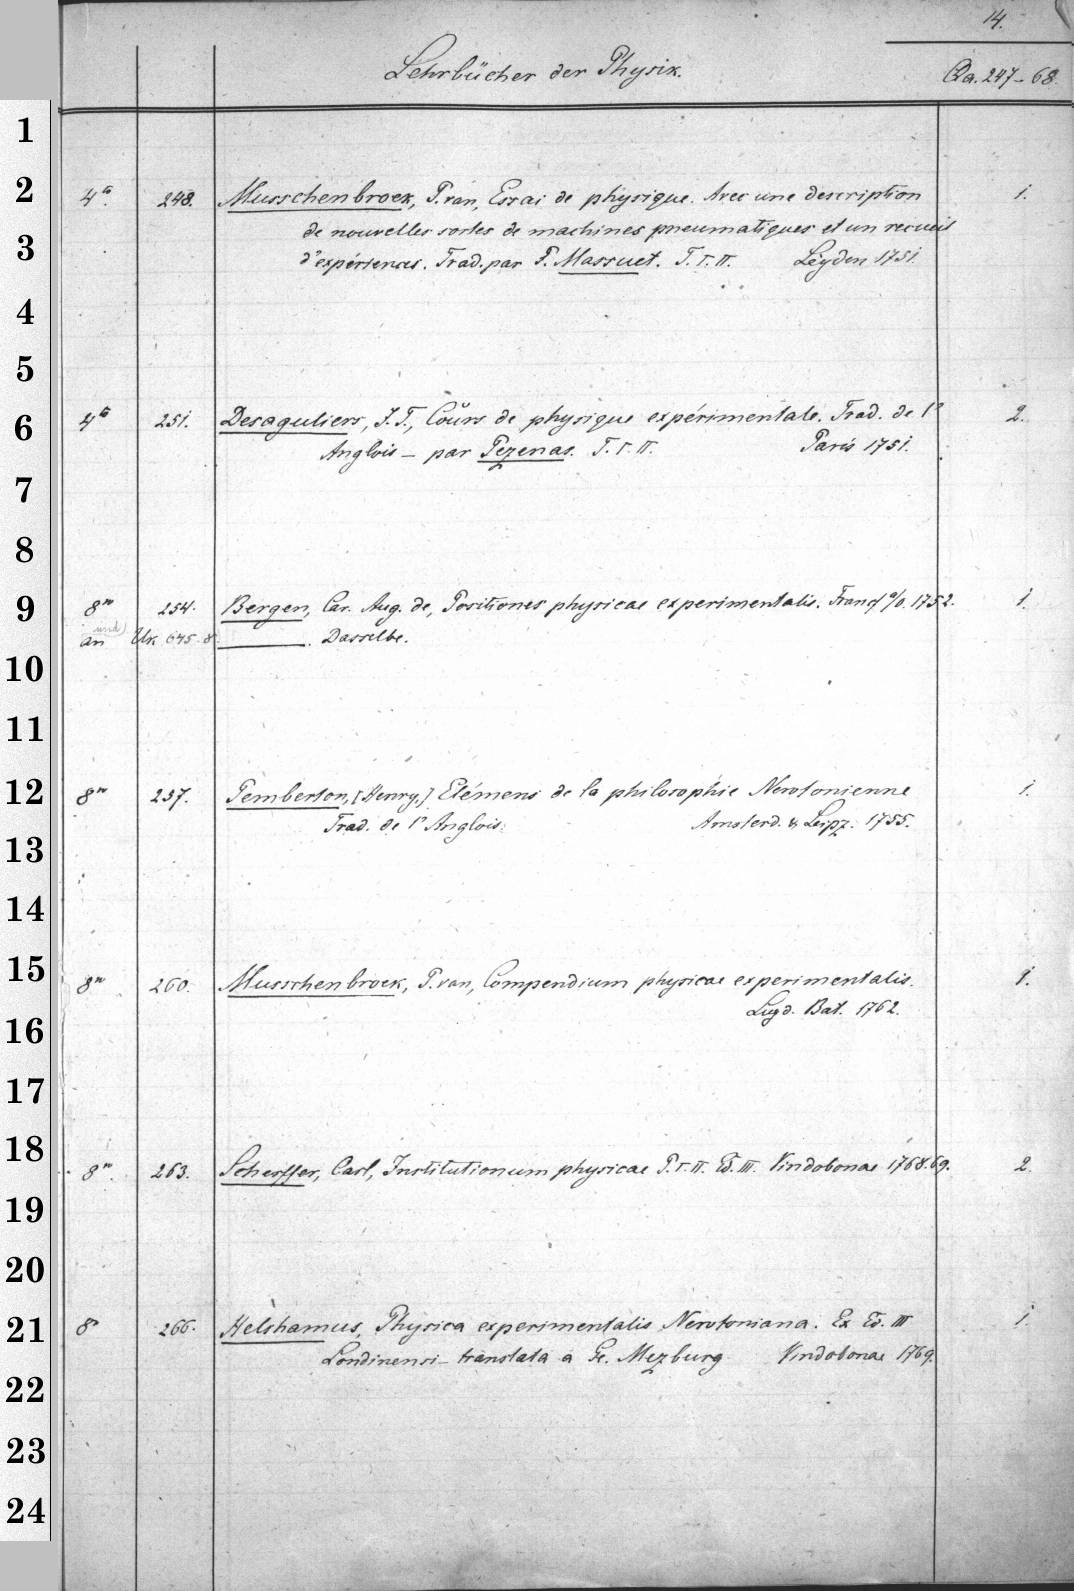 14.
Lehrbücher der Physik.
Qa. 247-68.
1
2
3
4
5
6
7
8
9
10
11
12
13
14
15
16
17
18
19
20
21
22
23
24
4to. 248. Musschenbroek, P. van, Essai de physique. Avec une description 1.
de nouvelles sortes de machines pneumatiques et un recueil
d'expériences. Trad. par P. Massuet. T. I. II. Leyden 1751.
4to 251. Desaguliers, J. T., Coŭrs de physique expérimentale. Trad. de l' 2.
Anglois – par Pezenas. T. I. II. Paris 1751.
8vo 254. Bergen, Car. Aug. de, Positiones physicae experimentalis. Francf a/O. 1752. 1.
und)
an Uk 645. 8. ——. Dasselbe.
8vo 257. Pemberton, [Henry,] Elémens de la philosophie Newtonienne 1.
Trad. de l'Anglois. Amsterd. & Leipz. 1755.
8vo 260. Musschenbroek, P. van, Compendium physicae experimentalis. 1.
Lugd. Bat. 1762.
8vo. 263. Scherffer, Carl, Institutionum physicae P. I. II. Ed. III. Vindobonae 1768.69. 2.
8o 266. Helshamus, Physica experimentalis Newtoniana. Ex Ed. III 1.
Londinensi – translata a Ge. Mezburg Vindobonae 1769.